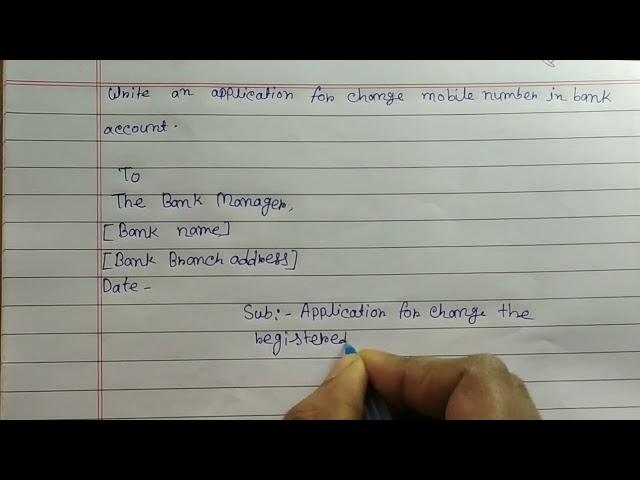 Write an application for change mobile number in bank
account.
To
The Bank Manager,
[Bank name]
[Bank Branch address]
Date -
Sub:- Application for change the
registered